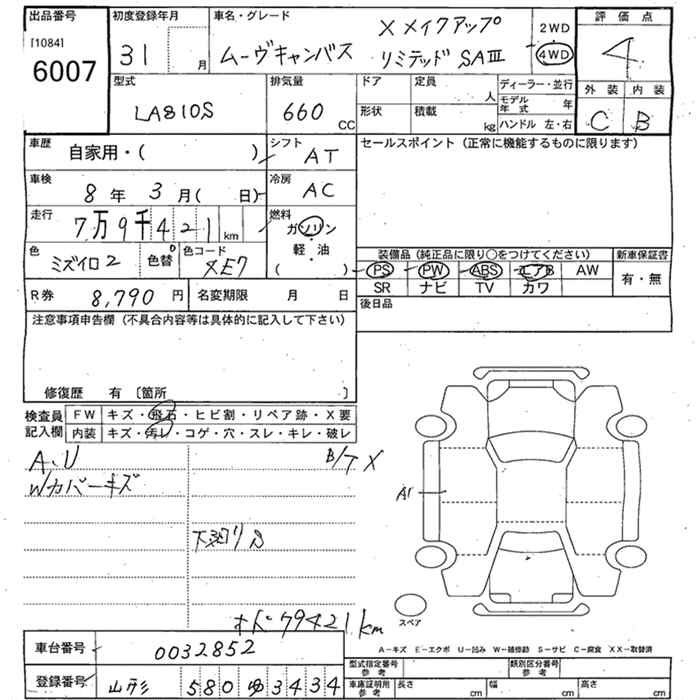 出品番号 初度登録年月 車名・グレード 2WD 評価点
[1084] 31 月 ムーヴキャンバス X メイクアップ リミテッド SAⅢ 4WD 4
6007
型式 排気量 ドア 定員 人 ディーラー・並行 外装 内装
LA810S 660 CC 形状 積載 kg モデル年式 年 C B
ハンドル 左・右
車歴 自家用・( ) シフト AT セールスポイント (正常に機能するものに限ります)
車検 8年 3月( 日) 冷房 AC
走行 7万9千421km 燃料 ガソリン・軽・油 ( )
色 ミズイロ2 色替 0 色コード XE7
装備品 (純正品に限り○をつけてください) 新車保証書
PS PW ABS エアB AW 有・無
SR ナビ TV カワ
R券 8,790円 名変期限 月 日 後日品
注意事項申告欄 (不具合内容等は具体的に記入して下さい)
修復歴 有 [箇所 ]
検査員記入欄 FW キズ・飛石・ヒビ割・リペア跡・X要
内装 キズ・汚レ・コゲ・穴・スレ・キレ・破レ
A、U B/T X
Wカバーキズ
A1
下廻り S
79421km
スペア
A-キズ E-エクボ U-凹み W-補修跡 S-サビ C-腐食 XX-取替済
車台番号 0032852
型式指定番号 参考 類別区分番号 参考
登録番号 山形 580 ゆ 3434
車庫証明用 参考 長さ cm 幅 cm 高さ cm